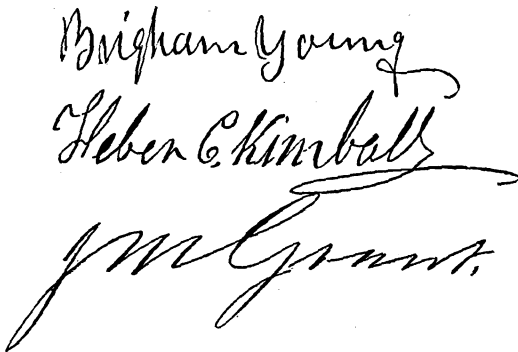 Brigham Young
Heber C. Kimball
J M Grant.